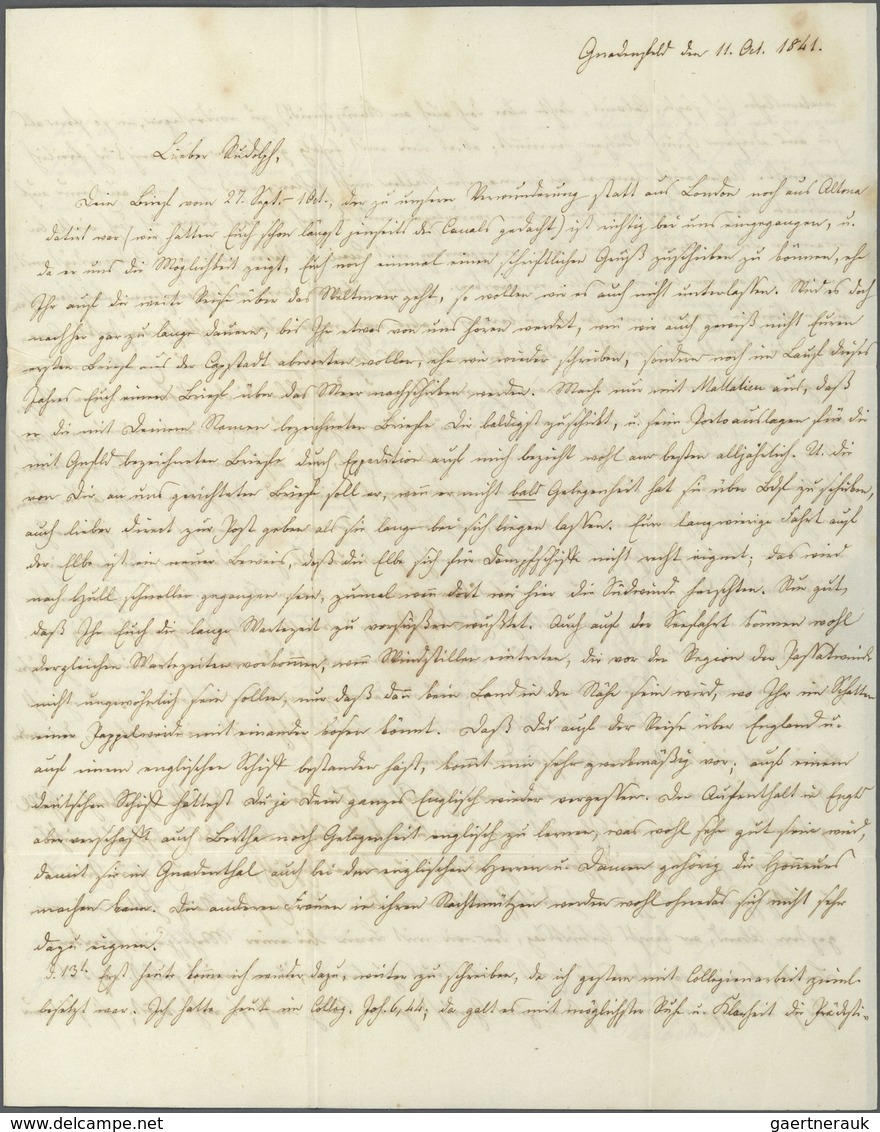 Gnadenfeld den 11. Oct. 1841.
Lieber Rudolph,
Dein Brief vom 27. Sept. – 1 Oct., der zu unsrer Verwunderung statt aus London noch aus Altona
datirt war (wir hatten Euch schon längst jenseits des Canals gedacht) ist richtig bei uns eingegangen, u.
da er uns die Möglichkeit zeigt, Euch noch einmal einen schriftlichen Gruß zuzuschicken zu können, ehe
Ihr auf die weite Reise über das Weltmeer geht, so wollen wir es auch nicht unterlassen. Wird es doch
nachher gar zu lange dauern, bis Ihr etwas von uns hören werdet, wenn wir auch gewiß nicht Euren
ersten Brief aus der Capstadt abwarten wollen, ehe wir wieder schreiben, sondern noch im Lauf dieses
Jahres Euch einen Brief über das Meer nachschicken werden. Mache nur mit Mallatien aus, daß
er die mit Deinem Namen bezeichneten Briefe Dir baldigst zuschickt, u. sein Portoauslagen für die
mit Gnfld bezeichneten Briefe durch Expedition auf mich bezieht wohl am besten alljährlich. U. die
von Dir an uns gerichteten Briefe soll er, wenn er nicht bald Gelegenheit hat sie über Bdf zu schicken,
auch lieber direct zur Post geben als sie lange bei sich liegen lassen. Eure langwierige Fahrt auf
der Elbe ist ein neuer Beweis, daß die Elbe sich für Dampfschiffe nicht recht eignet; das wird
nach Hull schneller gegangen sein, zumal wenn dort wie hier die Südwinde herrschten. Nur gut,
daß Ihr Euch die lange Wartezeit zu versüßen wußtet. Auch auf der Seefahrt können wohl
dergleichen Wartezeiten vorkommen, wenn Windstillen eintreten, die vor der Region der Passatwinde
nicht ungewöhnlich sein sollen, nur daß dann kein Land in der Nähe sein wird, wo Ihr im Schatten
einer Pappelweide mit einander kosen könnt. Daß Du auf der Reise über England u.
auf einem englischen Schiff bestanden hast, kommt mir sehr zweckmäßig vor; auf einem
deutschen Schiff hättest Du ja Dein ganzes Englisch wieder vergessen. Der Aufenthalt in Engld
aber verschafft auch Bertha noch Gelegenheit englisch zu lernen, was wohl sehr gut sein wird,
damit sie in Gnadenthal auch bei den englischen Herren u. Damen gehörig die Honneurs
machen kann. Die anderen Frauen in ihren Nachtmützen werden wohl ohnedas sich nicht sehr
dazu eignen.
d. 13t. Erst heute komme ich wieder dazu, weiter zu schreiben, da ich gestern mit Collegienarbeit zieml.
besetzt war. Ich hatte heut im Colleg. Joh. 6,44; da galt es mit möglichster Ruhe u. Klarheit die Prädesti-
www.delcampe.net
gaertnerauk